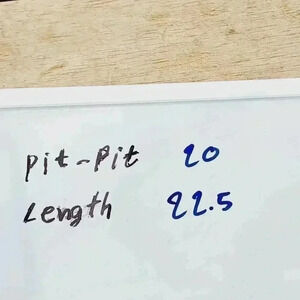 Pit-Pit 20
Length 22.5